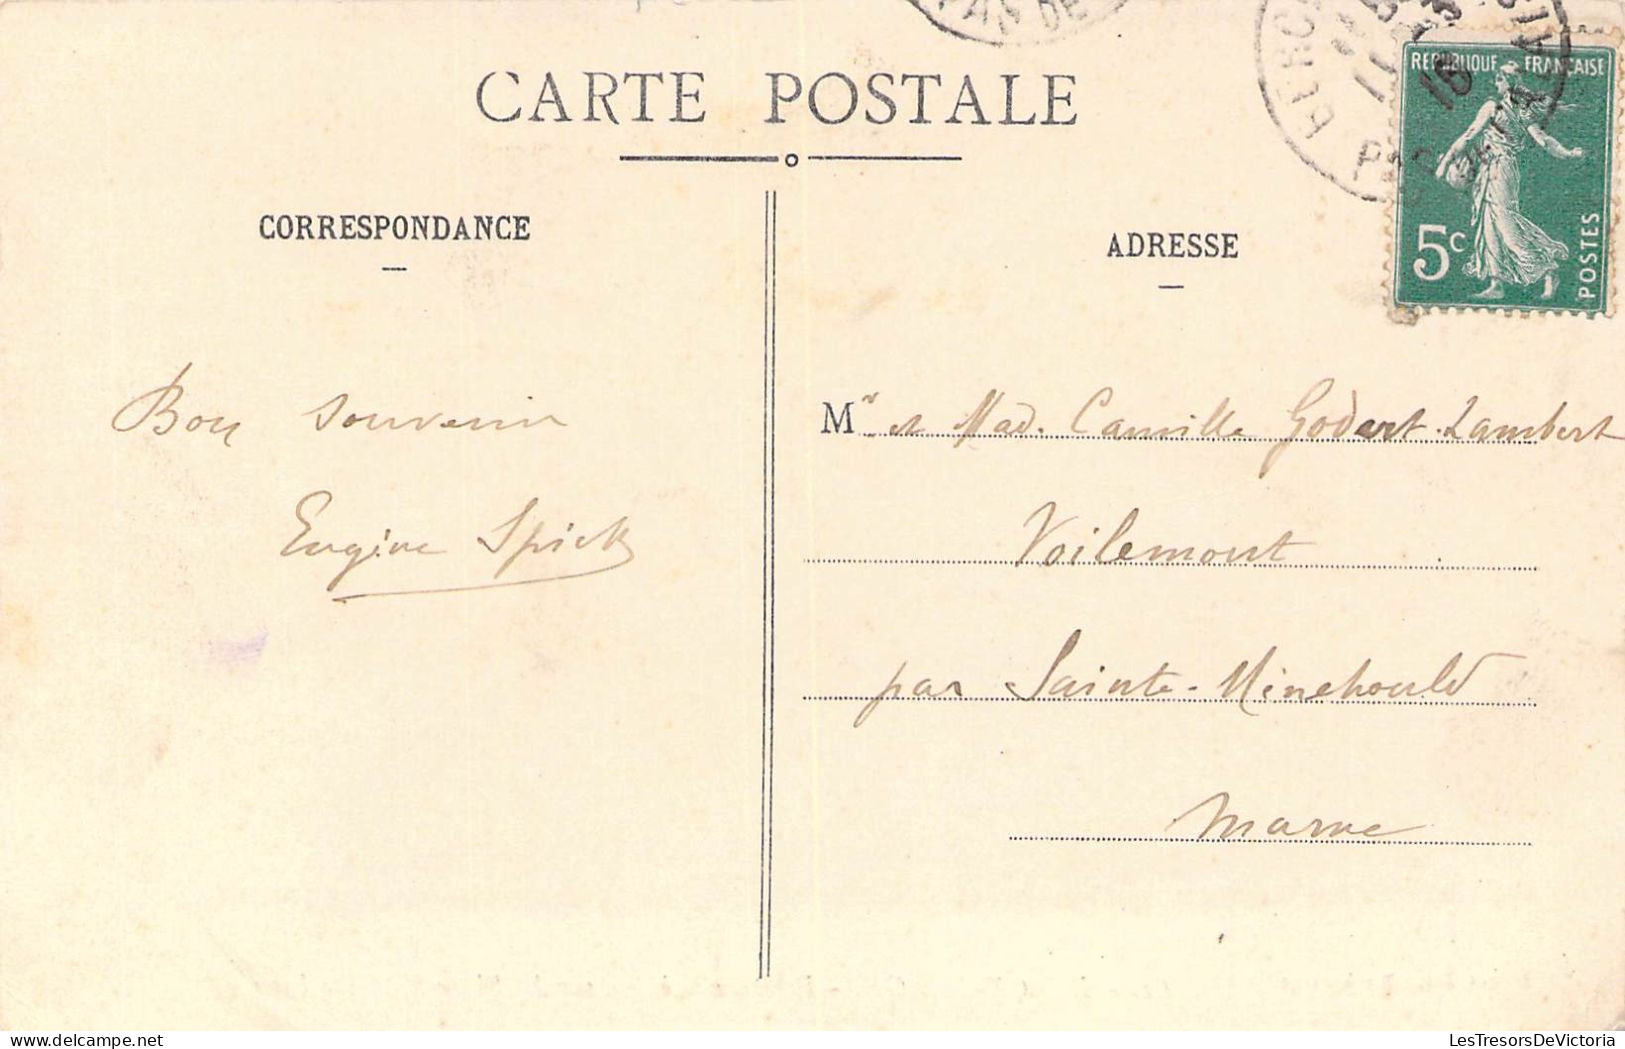 CARTE POSTALE
CORRESPONDANCE
ADRESSE
REPUBLIQUE FRANÇAISE
5c
POSTES
PAS DE
Bon souvenir
Eugène Spick
Mr et Mad. Camille Godart-Lambert
Voilemont
par Sainte-Menehould
Marne
LesTresorsDeVictoria